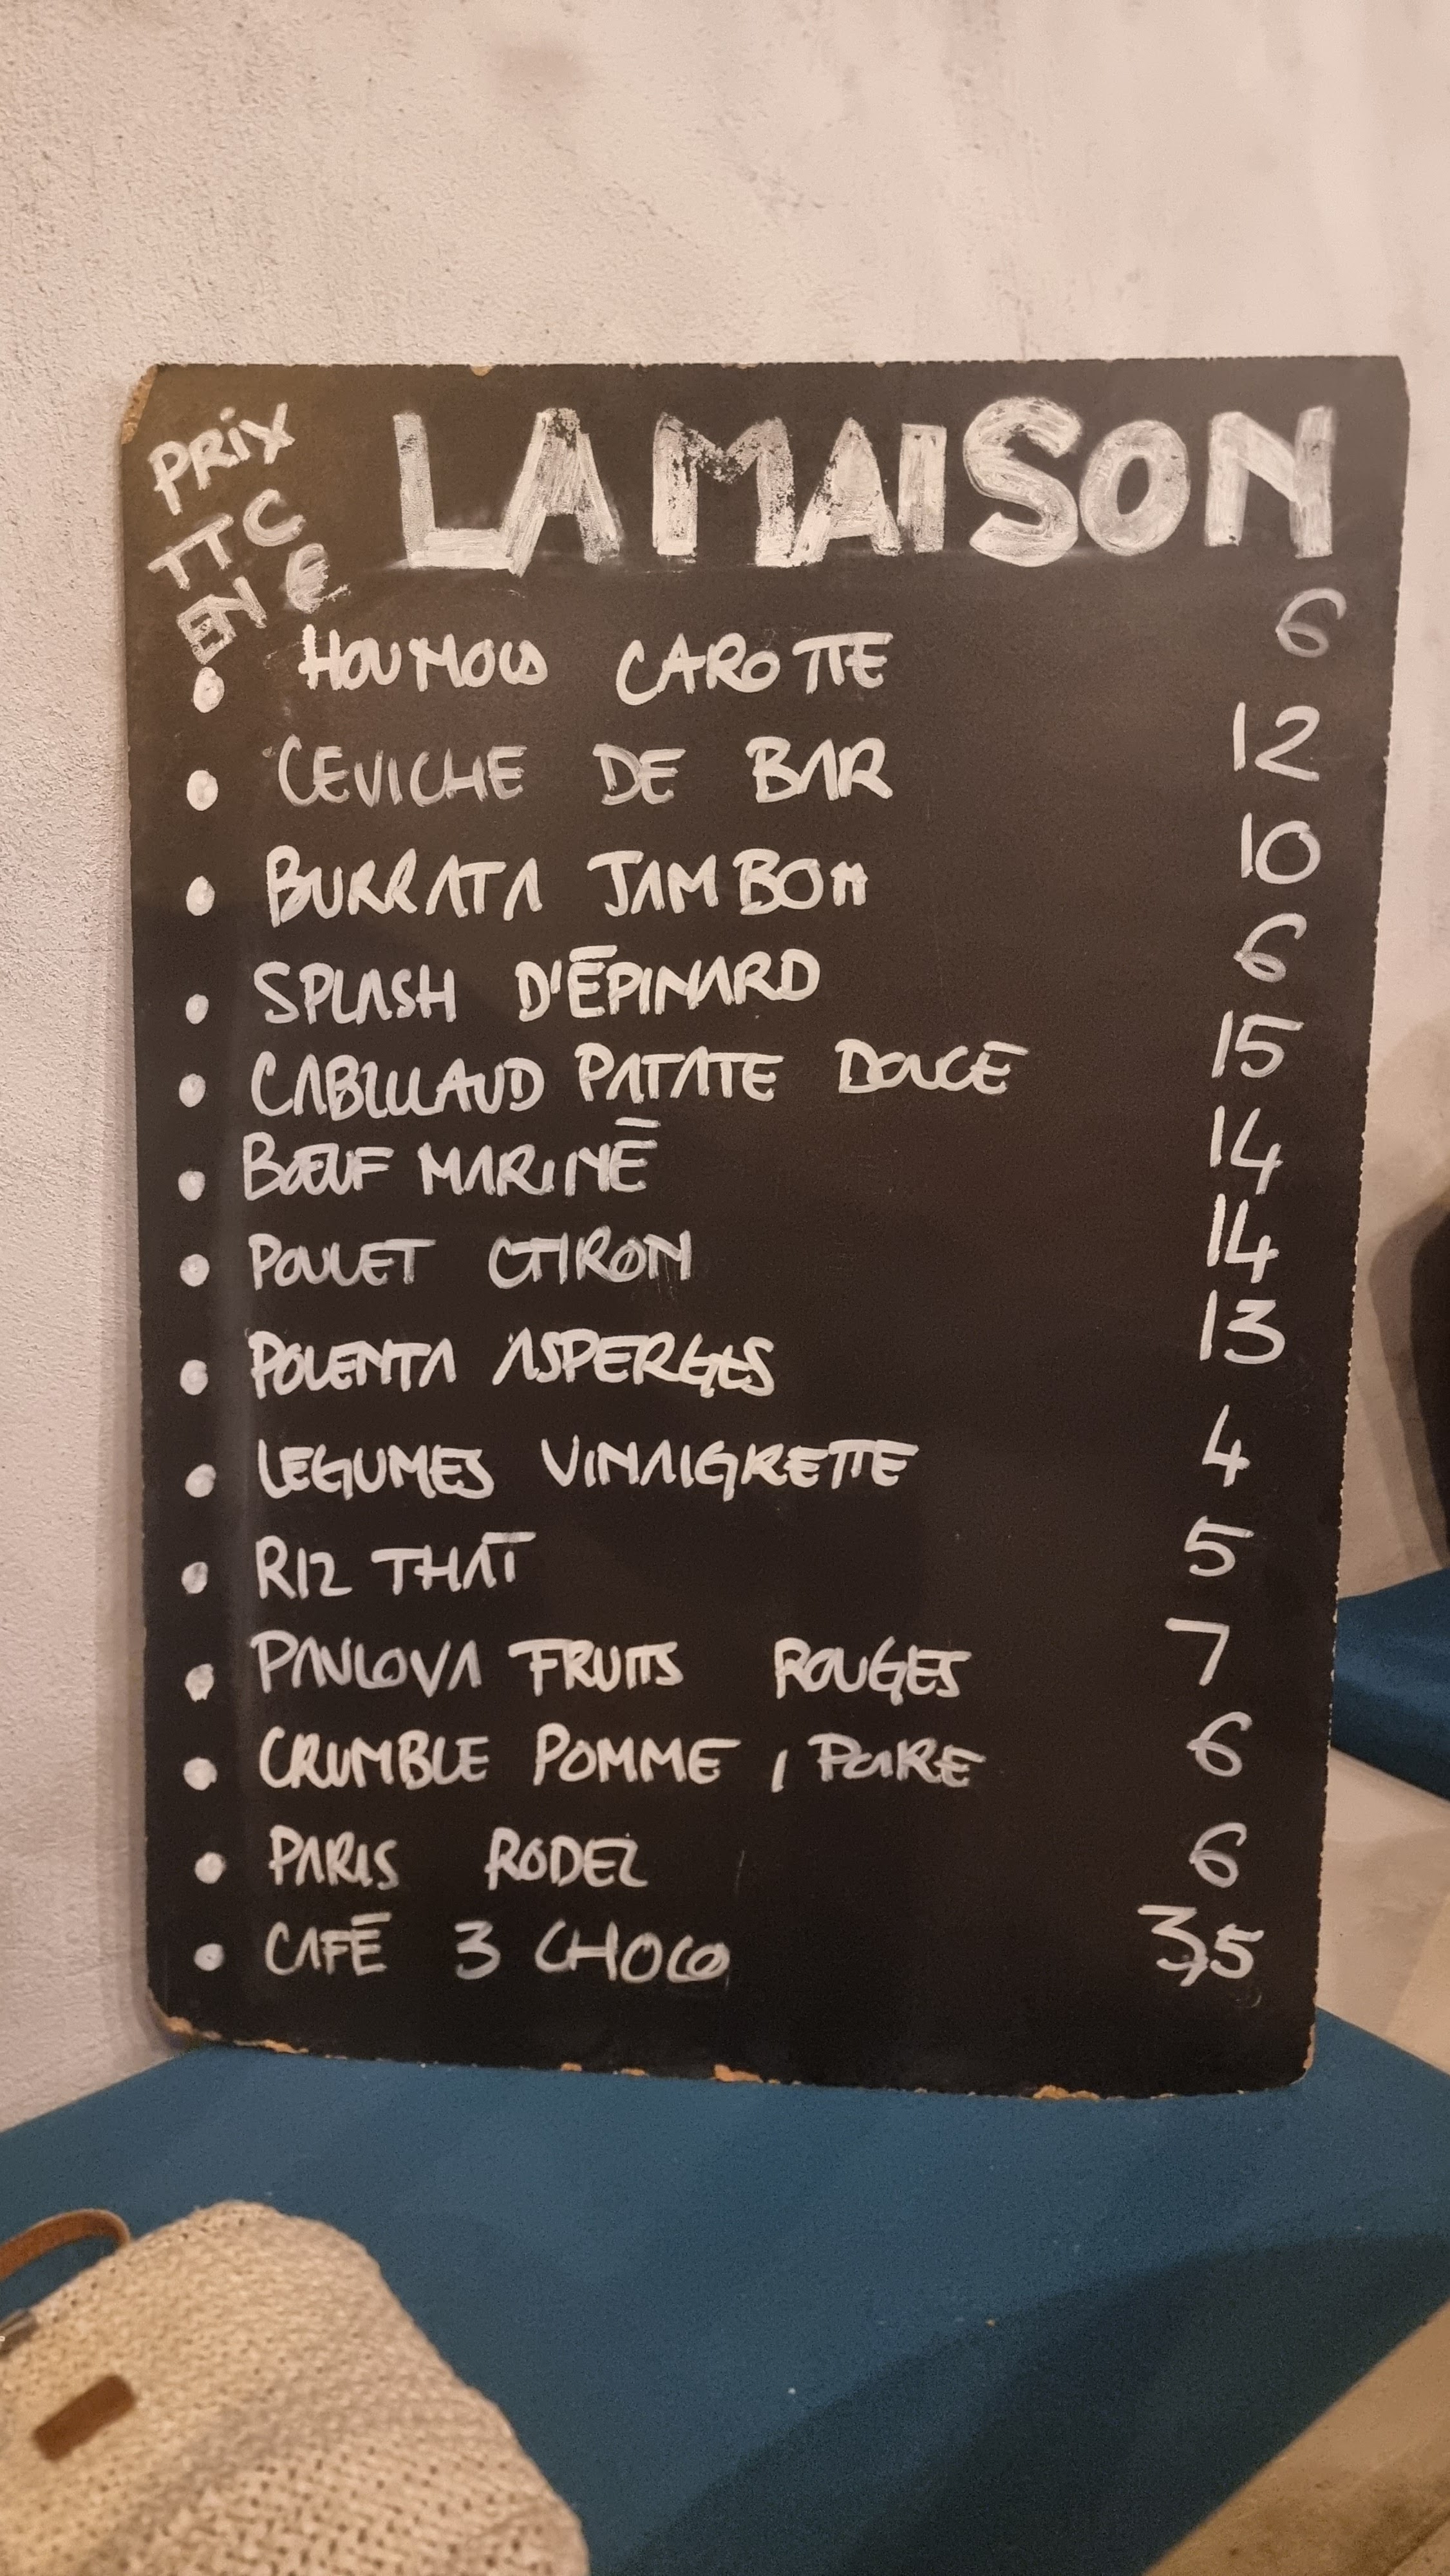 PRIX
TTC
EN €
LA MAISON
• HOUMOUS CAROTTE 6
• CEVICHE DE BAR 12
• BURRATA JAMBON 10
• SPLASH D'ÉPINARD 6
• CABILLAUD PATATE DOUCE 15
• BŒUF MARINÉ 14
• POULET CITRON 14
• POLENTA ASPERGES 13
• LEGUMES VINAIGRETTE 4
• RIZ THAÏ 5
• PAVLOVA FRUITS ROUGES 7
• CRUMBLE POMME, POIRE 6
• PARIS RODEZ 6
• CAFÉ 3 CHOCO 3,5